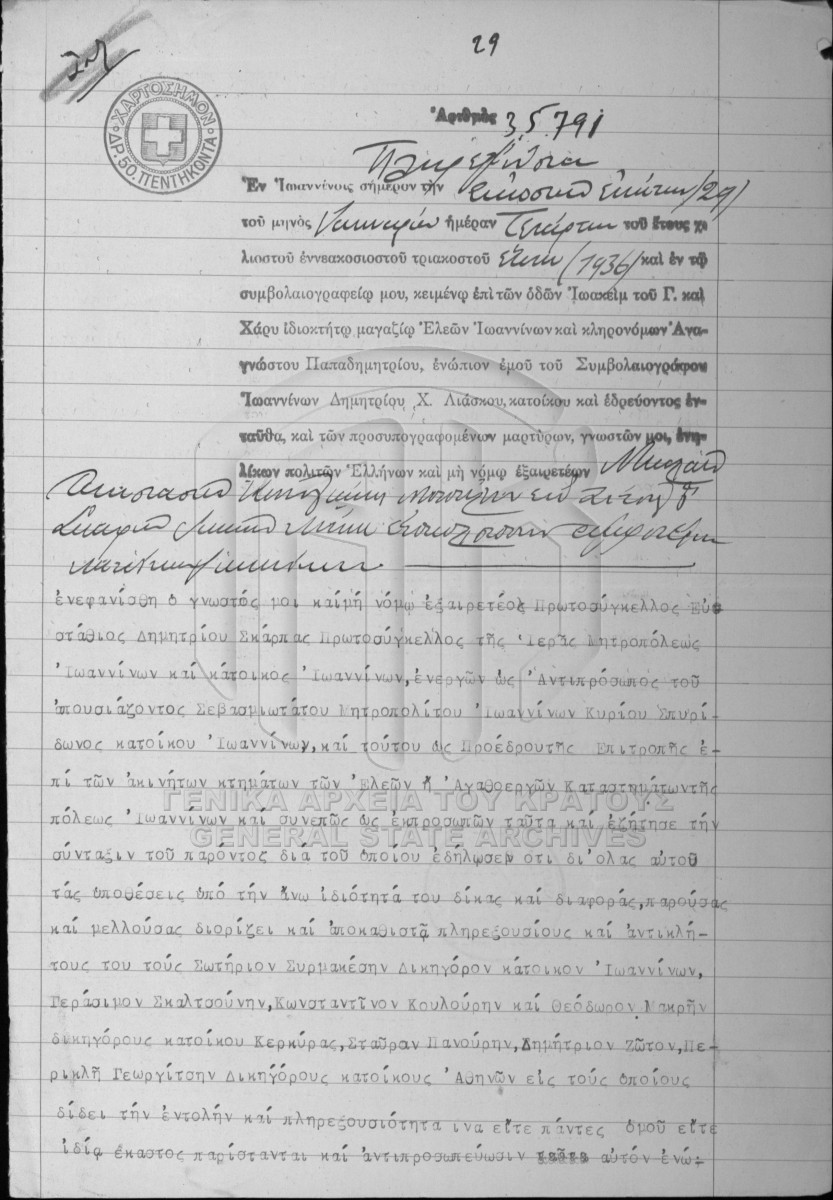 29
ΧΑΡΤΟΣΗΜΟΝ
ΔΡ. 50. ΠΕΝΤΗΚΟΝΤΑ
Ἀριθμὸς 35.791
Πληρεξούσιον
Ἐν Ἰωαννίνοις σήμερον τὴν εἰκοστὴν ἐνάτην /29/
τοῦ μηνὸς Ἰανουαρίου ἡμέραν Τετάρτην τοῦ ἔτους χι
λιοστοῦ ἐννεακοσιοστοῦ τριακοστοῦ ἕκτου (1936) καὶ ἐν τῷ
συμβολαιογραφείῳ μου, κειμένῳ ἐπὶ τῶν ὁδῶν Ἰωακεὶμ τοῦ Γ. καὶ
Χάρυ ἰδιοκτήτῳ μαγαζίῳ Ἐλεῶν Ἰωαννίνων καὶ κληρονόμων Ἀνα-
γνώστου Παπαδημητρίου, ἐνώπιον ἐμοῦ τοῦ Συμβολαιογράφου
Ἰωαννίνων Δημητρίου Χ. Λιάσκου, κατοίκου καὶ ἑδρεύοντος ἐν-
ταῦθα, καὶ τῶν προσυπογραφομένων μαρτύρων, γνωστῶν μοι, ἐνη-
λίκων πολιτῶν Ἑλλήνων καὶ μὴ νόμῳ ἐξαιρετέων
ἐνεφανίσθη ὁ γνωστός μοι καί μή νόμῳ ἐξαιρετέος Πρωτοσύγκελλος Εὐ
στάθιος Δημητρίου Σκάρπας Πρωτοσύγκελλος τῆς Ἱερᾶς Μητροπόλεως
Ἰωαννίνων καί κάτοικος Ἰωαννίνων, ἐνεργῶν ὡς Ἀντιπρόσωπος τοῦ
ἀπουσιάζοντος Σεβασμιωτάτου Μητροπολίτου Ἰωαννίνων Κυρίου Σπυρί
δωνος κατοίκου Ἰωαννίνων, καί τούτου ὡς Προέδρουτῆς Ἐπιτροπῆς ἐ-
πί τῶν ἀκινήτων κτημάτων τῶν Ἐλεῶν ἤ Ἀγαθοεργῶν Καταστημάτωντῆς
πόλεως Ἰωαννίνων καί συνεπῶς ὡς ἐκπροσωπῶν ταῦτα καί ἐζήτησε τήν
σύνταξιν τοῦ παρόντος διά τοῦ ὁποίου ἐδήλωσεν ὅτι δι'ὅλας αὐτοῦ
τάς ὑποθέσεις ὑπό τήν ἄνω ἰδιότητά του δίκας καί διαφοράς, παρούσας
καί μελλούσας διορίζει καί ἀποκαθιστᾷ πληρεξουσίους καί ἀντικλή-
τους του τούς Σωτήριον Συρμακέσην Δικηγόρον κάτοικον Ἰωαννίνων,
Γεράσιμον Σκαλτσούνην, Κωνσταντῖνον Κουλούρην καί Θεόδωρον Μακρῆν
δικηγόρους κατοίκου Κερκύρας, Σταῦραν Πανούρην, Δημήτριον Ζῶτον, Πε-
ρικλῆ Γεωργίτσην Δικηγόρους κατοίκους Ἀθηνῶν εἰς τούς ὁποίους
δίδει τήν ἐντολήν καί πληρεξουσιότητα ἵνα εἴτε πάντες ὁμοῦ εἴτε
ἰδίᾳ ἕκαστος παρίστανται καί ἀντιπροσωπεύωσιν αὐτόν ἐνώ-
ΓΕΝΙΚΑ ΑΡΧΕΙΑ ΤΟΥ ΚΡΑΤΟΥΣ
GENERAL STATE ARCHIVES